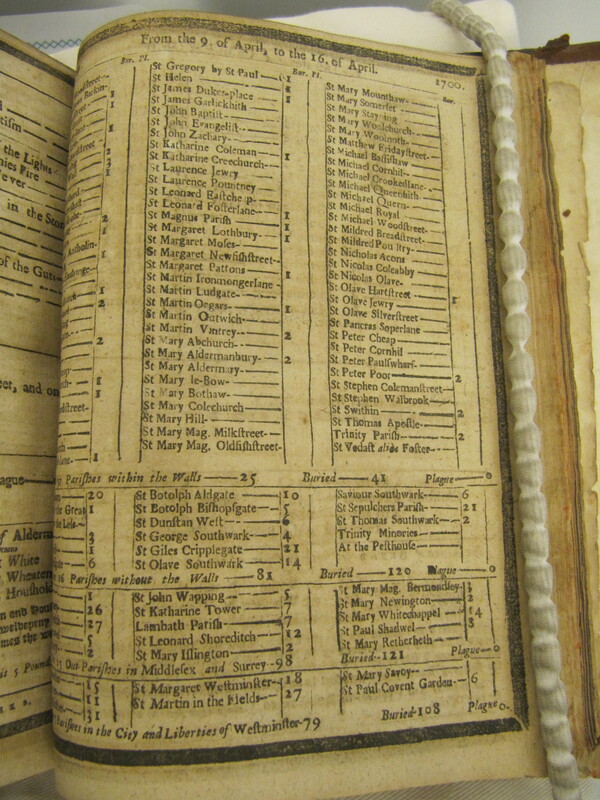 From the 9. of April, to the 16. of April. 1700.
Bur. Pl.
Bur. Pl.
Bur.
St Gregory by St Paul 1
St Helen 1
St James Dukes-place 1
St James Garlickhith 1
St John Baptist
St John Evangelist
St John Zachary
St Katharine Coleman
St Katharine Creechurch 1
St Laurence Jewry
St Laurence Pountney
St Leonard Eastcheap
St Leonard Fosterlane
St Magnus Parish 1
St Margaret Lothbury 1
St Margaret Moses 1
St Margaret Newfishstreet
St Margaret Pattons
St Martin Ironmongerlane 1
St Martin Ludgate
St Martin Orgars 1
St Martin Outwich
St Martin Vintrey 2
St Mary Abchurch
St Mary Aldermanbury 2
St Mary Aldermary
St Mary le-Bow
St Mary Bothaw
St Mary Colechurch
St Mary Hill
St Mary Mag. Milkstreet
St Mary Mag. Oldfishstreet
St Mary Mounthaw
St Mary Somerset
St Mary Stayning
St Mary Woolchurch
St Mary Woolnoth
St Matthew Fridaystreet
St Michael Bassishaw
St Michael Cornhil
St Michael Crookedlane
St Michael Queenhith
St Michael Quern
St Michael Royal
St Michael Woodstreet
St Mildred Breadstreet
St Mildred Poultry
St Nicholas Acons
St Nicolas Coleabby
St Nicolas Olave
St Olave Hartstreet
St Olave Jewry 1
St Olave Silverstreet
St Pancras Soperlane
St Peter Cheap
St Peter Cornhil
St Peter Paulswharf
St Peter Poor
St Stephen Colemanstreet 2
St Stephen Walbrook
St Swithin 2
St Thomas Apostle
Trinity Parish 2
St Vedast alias Foster
Parishes within the Walls 25 Buried 41 Plague 0
St Botolph Aldgate 10
St Botolph Bishopsgate 5
St Dunstan West 6
St George Southwark 4
St Giles Cripplegate 21
St Olave Southwark 14
Saviour Southwark 6
St Sepulchres Parish 21
St Thomas Southwark 2
Trinity Minories
At the Pesthouse
16 Parishes without the Walls 81 Buried 120 Plague 0
St John Wapping 5
St Katharine Tower 7
Lambath Parish 7
St Leonard Shoreditch 12
St Mary Islington 2
St Mary Mag. Bermondsey
St Mary Newington 2
St Mary Whitechappel 14
St Paul Shadwel 8
St Mary Retherheth
Out-Parishes in Middlesex and Surrey 98 Buried 121 Plague 0
St Margaret Westminster 18
St Martin in the Fields 27
St Mary Savoy
St Paul Covent Garden 6
Parishes in the City and Liberties of Westminster 79 Buried 108 Plague 0